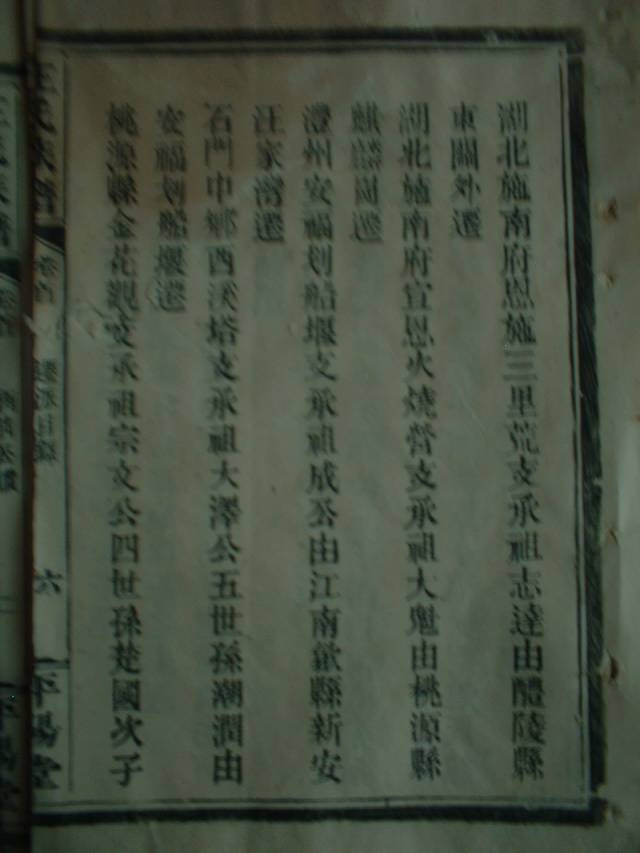 湖北施南府恩施三里荒支承祖志達由醴陵縣
東關外遷
湖北施南府宣恩火燒營支承祖大魁由桃源縣
麒麟崗遷
澧州安福划船堰支承祖成公由江南歙縣新安
汪家灣遷
石門中鄉西溪塔支承祖大澤公五世孫潮潤由
安福划船堰遷
桃源縣金花觀支承祖宗文公四世孫楚國次子
汪氏族譜
卷首
目錄
六
平陽堂